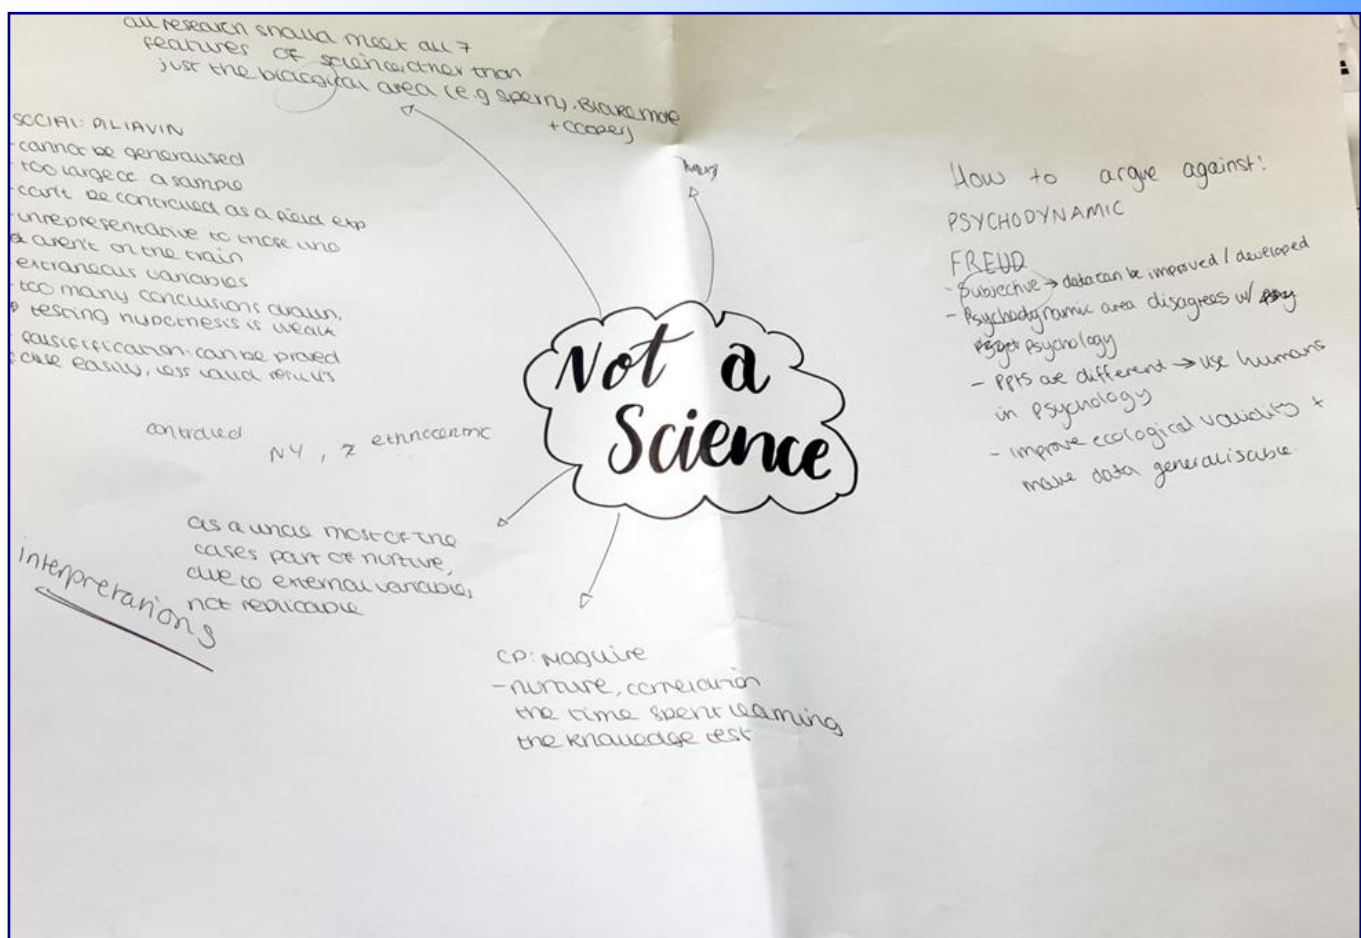 all research should meet all 7
features of science, other than
just the biological area (e.g sperry, Blakemore
+ cooper)
SOCIAL: PILIAVIN
- cannot be generalised
- too large of a sample
- can't be controlled as a field exp
- unrepresentative to those who
aren't on the train
- extraneous variables
- too many conclusions drawn,
testing hypothesis is weak
falsification: can be proved
false easily, less valid results
controlled
NY, 7 ethnocentric
as a whole most of the
cases part of nurture,
due to external variables,
not replicable
interpretations
Not a
Science
CP: Maguire
- nurture, correlation
the time spent learning
the knowledge test
How to argue against:
PSYCHODYNAMIC
FREUD
- Subjective → data can be improved / developed
- Psychodynamic area disagrees w/
psychology
- PPTS are different → use humans
in psychology
- improve ecological validity +
make data generalisable